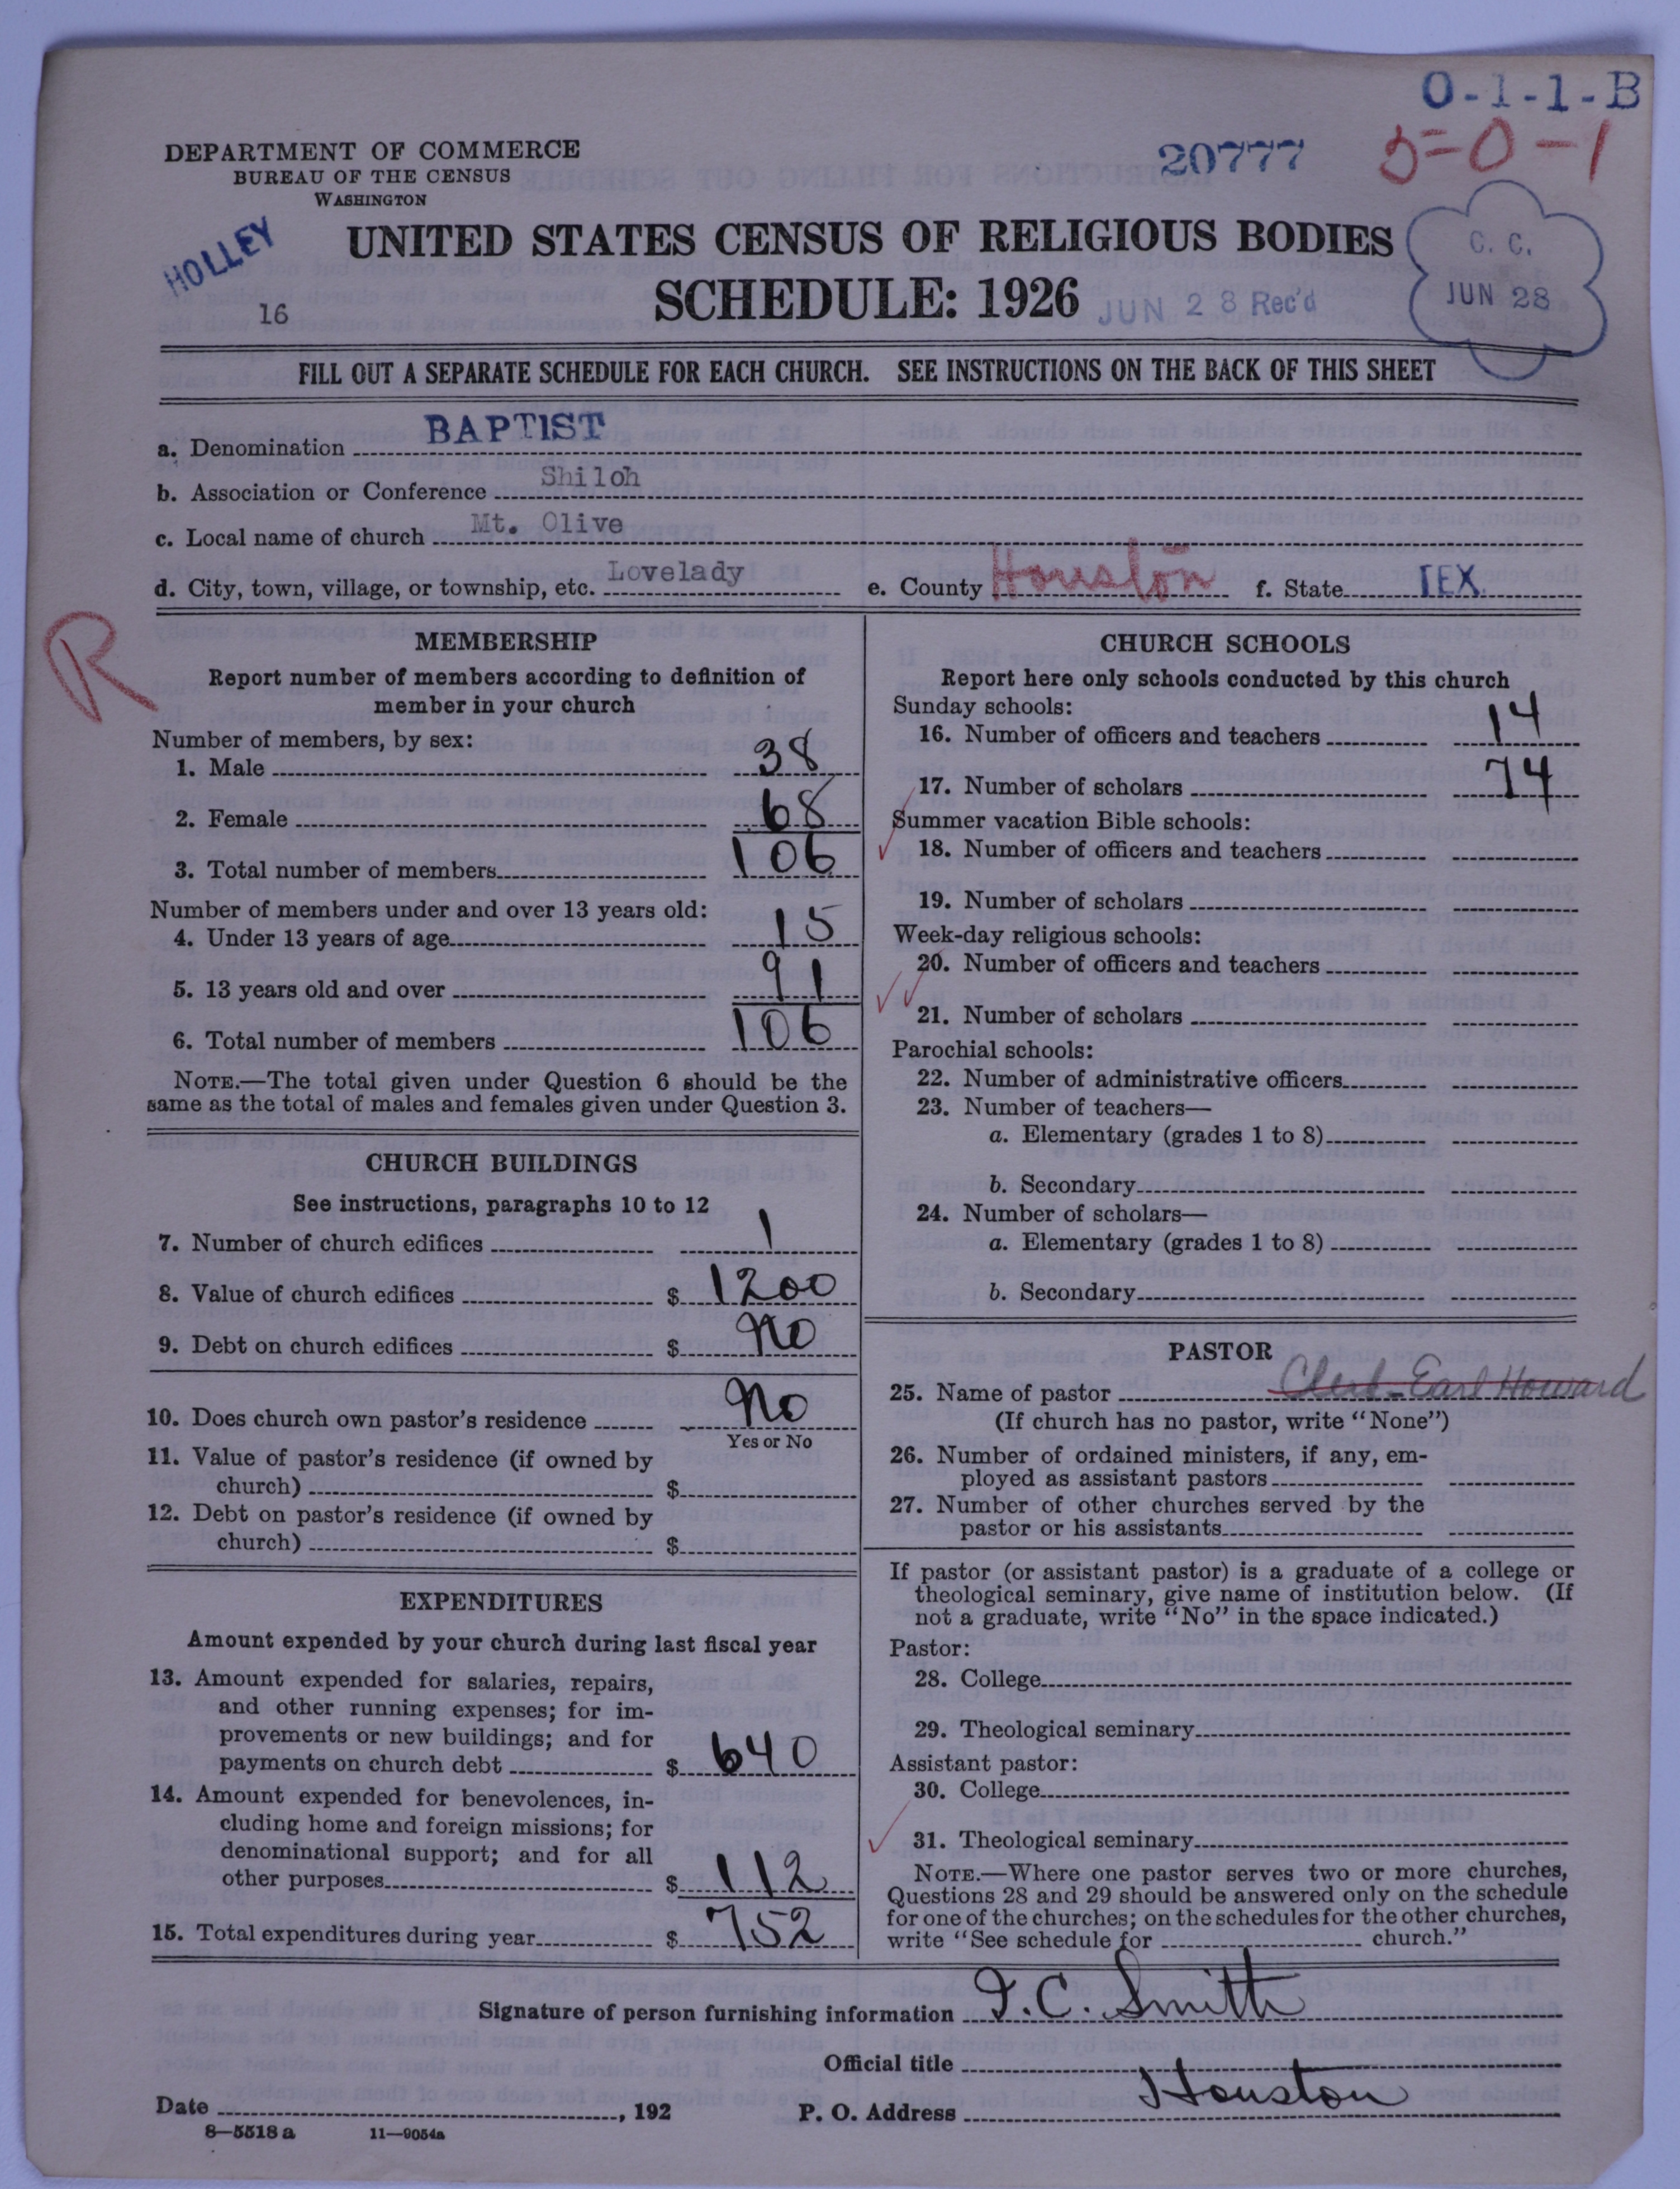 O-1-1-B
5-0-1
20777
DEPARTMENT OF COMMERCE
BUREAU OF THE CENSUS
WASHINGTON
HOLLEY
16
UNITED STATES CENSUS OF RELIGIOUS BODIES
SCHEDULE: 1926
JUN 28 Rec'd
C. C.
JUN 28
FILL OUT A SEPARATE SCHEDULE FOR EACH CHURCH. SEE INSTRUCTIONS ON THE BACK OF THIS SHEET
a. Denomination BAPTIST
b. Association or Conference Shiloh
c. Local name of church Mt. Olive
d. City, town, village, or township, etc. Lovelady e. County Houston f. State TEX.
R
MEMBERSHIP
Report number of members according to definition of
member in your church
Number of members, by sex:
1. Male 38
2. Female 68
3. Total number of members 106
Number of members under and over 13 years old:
4. Under 13 years of age 15
5. 13 years old and over 91
6. Total number of members 106
NOTE.—The total given under Question 6 should be the
same as the total of males and females given under Question 3.
CHURCH BUILDINGS
See instructions, paragraphs 10 to 12
7. Number of church edifices 1
8. Value of church edifices $ 1200
9. Debt on church edifices $ No
10. Does church own pastor's residence No
Yes or No
11. Value of pastor's residence (if owned by
church) $
12. Debt on pastor's residence (if owned by
church) $
EXPENDITURES
Amount expended by your church during last fiscal year
13. Amount expended for salaries, repairs,
and other running expenses; for im-
provements or new buildings; and for
payments on church debt $ 640
14. Amount expended for benevolences, in-
cluding home and foreign missions; for
denominational support; and for all
other purposes $ 112
15. Total expenditures during year $ 752
CHURCH SCHOOLS
Report here only schools conducted by this church
Sunday schools:
16. Number of officers and teachers 14
17. Number of scholars 74
Summer vacation Bible schools:
18. Number of officers and teachers
19. Number of scholars
Week-day religious schools:
20. Number of officers and teachers
21. Number of scholars
Parochial schools:
22. Number of administrative officers
23. Number of teachers—
a. Elementary (grades 1 to 8)
b. Secondary
24. Number of scholars—
a. Elementary (grades 1 to 8)
b. Secondary
PASTOR
25. Name of pastor Clerk-Earl Howard
(If church has no pastor, write "None")
26. Number of ordained ministers, if any, em-
ployed as assistant pastors
27. Number of other churches served by the
pastor or his assistants
If pastor (or assistant pastor) is a graduate of a college or
theological seminary, give name of institution below. (If
not a graduate, write "No" in the space indicated.)
Pastor:
28. College
29. Theological seminary
Assistant pastor:
30. College
31. Theological seminary
NOTE.—Where one pastor serves two or more churches,
Questions 28 and 29 should be answered only on the schedule
for one of the churches; on the schedules for the other churches,
write "See schedule for church."
Signature of person furnishing information J. C. Smith
Official title
Date , 192 P. O. Address Houston
8—5518 a 11—9054a